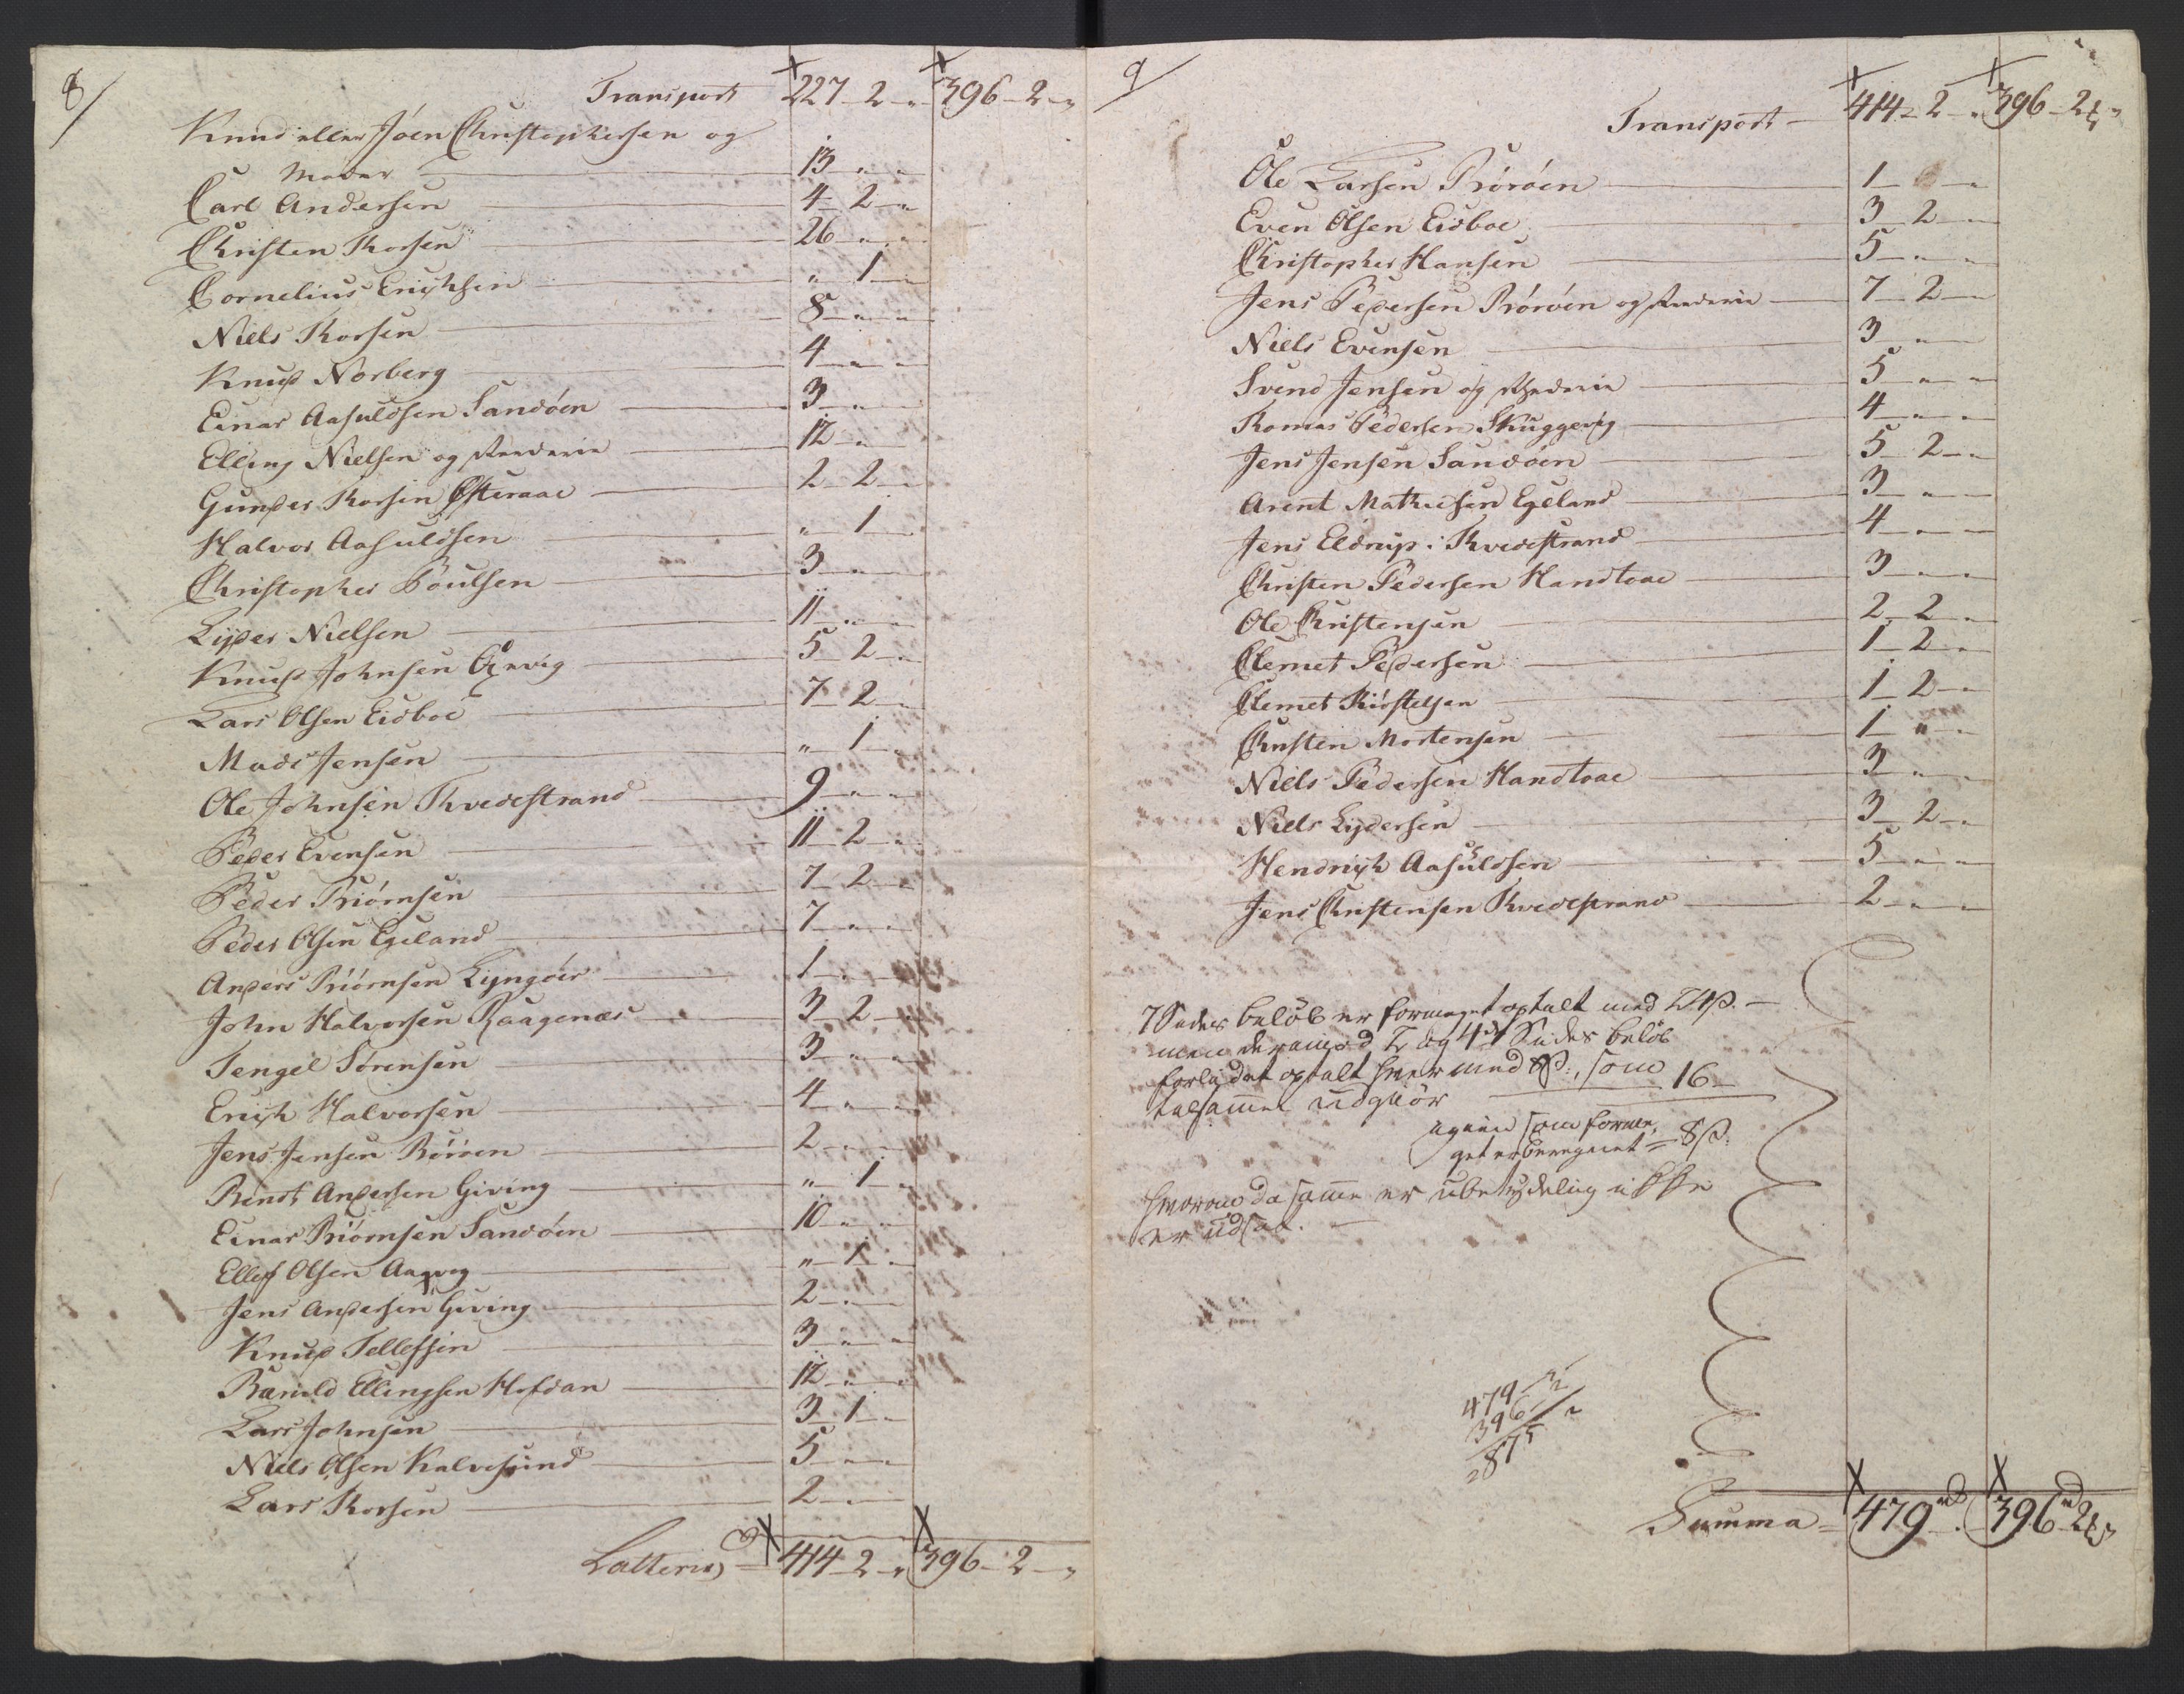 8/
Transport 227 - 2 - " 396 - 2 - "
Knud eller Joen Christophersen og
Moder 13 - " - "
Carl Andersen 4 - 2 - "
Christen Thorsen 26 - " - "
Cornelius Erichsen " - 1 - "
Niels Thorsen 8 - " - "
Knud Norberg 4 - " - "
Einar Aasuldsen Sandöen 3 - " -
Elling Nielsen og Rederie 12 - " -
Gunder Thorsen Österaae 2 - 2 - "
Halvor Aasuldsen " - 1 -
Christopher Poulsen 3 - " -
Lyder Nielsen 11 - " - "
Knud Johnsen 5 - 2 - "
Lars Olsen Eidboe 7 - 2 - "
Mads Jensen " - 1 - "
Ole Johnsen Tvedestrand 9 - " - "
Peder Evensen 11 - 2 - "
Peder Biörnsen 7 - 2 - "
Peder Olsen Egeland 7 - " - "
Anders Biörnsen Lyngöer 1 - " -
John Halvorsen Raagenæs 3 - 2 - "
Tengel Sörensen 3 - " - "
Erich Halvorsen 4 - " - "
Jens Jensen Boröen 2 - " - "
Bendt Andersen Giving " - 1 - "
Einar Biörnsen Sandöen 10 - " - "
Ellef Olsen Aaqvog " - 1 - "
Jens Andersen Giving 2 - " -
Knud Tellefsen 3 - " - "
Baruld Ellingsen Hofdan 12 - " - "
Lars Johnsen 3 - 1 - "
Niels Olsen Kalvesund 5 - " - "
Lars Thorsen 2 - " -
Latteris 414 - 2 - " 396 - 2 - "
9/
Transport 414 - 2 - " 396 - 2 - "
Ole Larsen Boröen 1 - - "
Even Olsen Eidboe 3 - 2 - "
Christopher Hansen 5 - " - "
Jens Pedersen Boröen og Rederie 7 - 2 - "
Niels Evensen 3 - " -
Svend Jensen og Rhederie 5 - " - "
Thomas Pedersen Skuggevig 4 - " - "
Jens Jensen Sandöen 5 - 2 - "
Arent Mathiesen Egeland 3 - " -
Jens Eldrup i Tvedestrand 4 - " - "
Christen Pedersen Handtoae 3 - " - "
Ole Christensen 2 - 2 - "
Clemet Pedersen 1 - 2 - "
Clemet Kiöstelsen 1 - 2 - "
Christen Mortensen 1 - " - "
Niels Pedersen Handtoae 3 - " - "
Niels Lydersen 3 - 2 - "
Hendrich Aasuldsen 5 - " - "
Jens Christensen Tvedestrand 2 - " - "
7 Sides belöb er formeget optalt med 24 ß. -
men derimod 2 og 4de Sides belöb
forlidet optalt hver med 8 ß:, som
tilsammen udgiör 16 -
igien som forme-
get er beregnet = 8 ß:
hvorom da samme er ubetydelig ikke
er udsat. -
479
396 - 2
875 - 2
Summa = 479 rd - " 396 rd 2